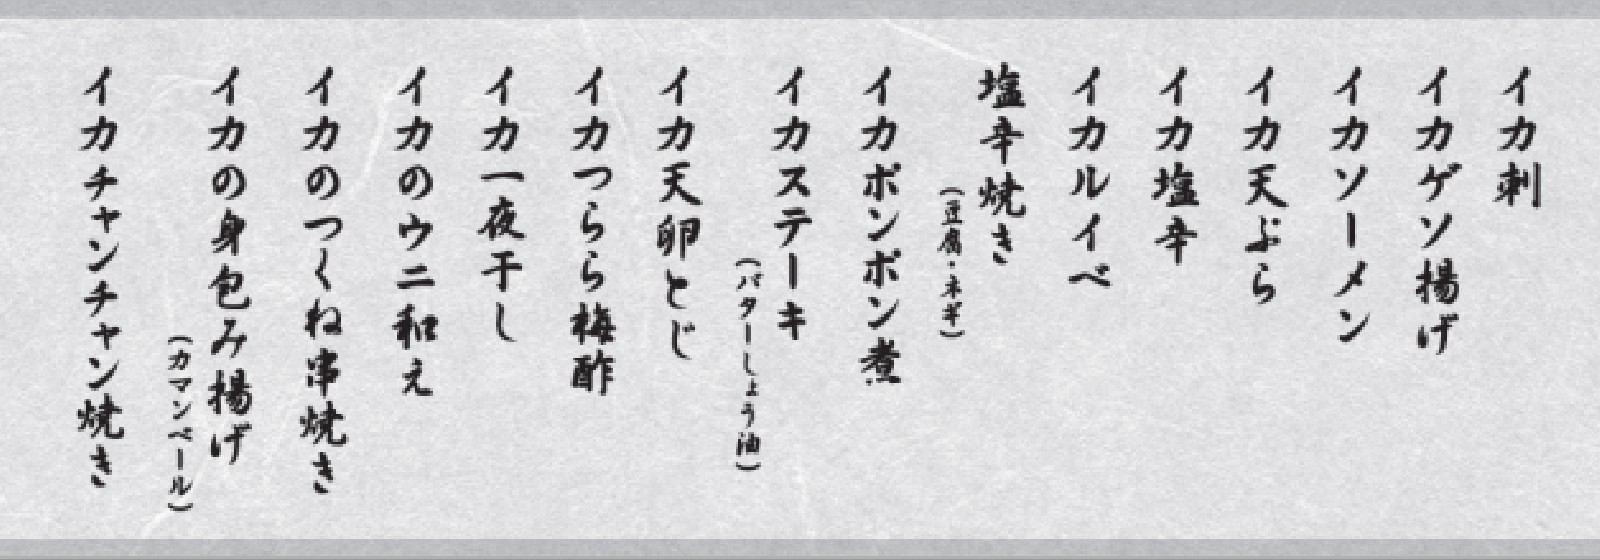 イカ刺
イカゲソ揚げ
イカソーメン
イカ天ぷら
イカ塩辛
イカルイベ
塩辛焼き
(豆腐・ネギ)
イカポンポン煮
イカステーキ
(バターしょう油)
イカ天卵とじ
イカつらら梅酢
イカ一夜干し
イカのウニ和え
イカのつくね串焼き
イカの身包み揚げ
(カマンベール)
イカチャンチャン焼き